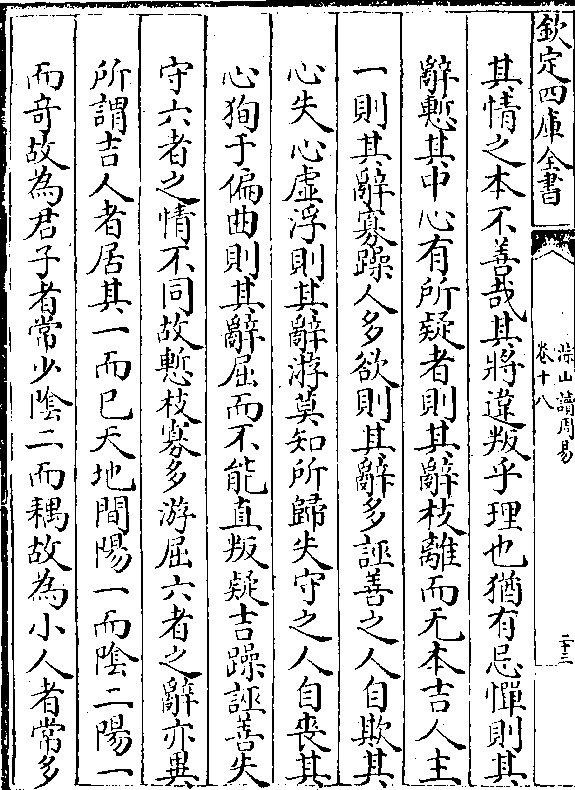 欽定四庫全書
深山讀周易
卷十八
二十三
其情之本不善哉其將違叛乎理也猶有忌憚則其
辭慙其中心有所疑者則其辭枝離而无本吉人主
一則其辭寡躁人多欲則其辭多誣善之人自欺其
心失心虚浮則其辭游莫知所歸失守之人自喪其
心狥于偏曲則其辭屈而不能直叛疑吉躁誣善失
守六者之情不同故慙枝寡多游屈六者之辭亦異
所謂吉人者居其一而已天地間陽一而陰二陽一
而竒故為君子者常少陰二而耦故為小人者常多